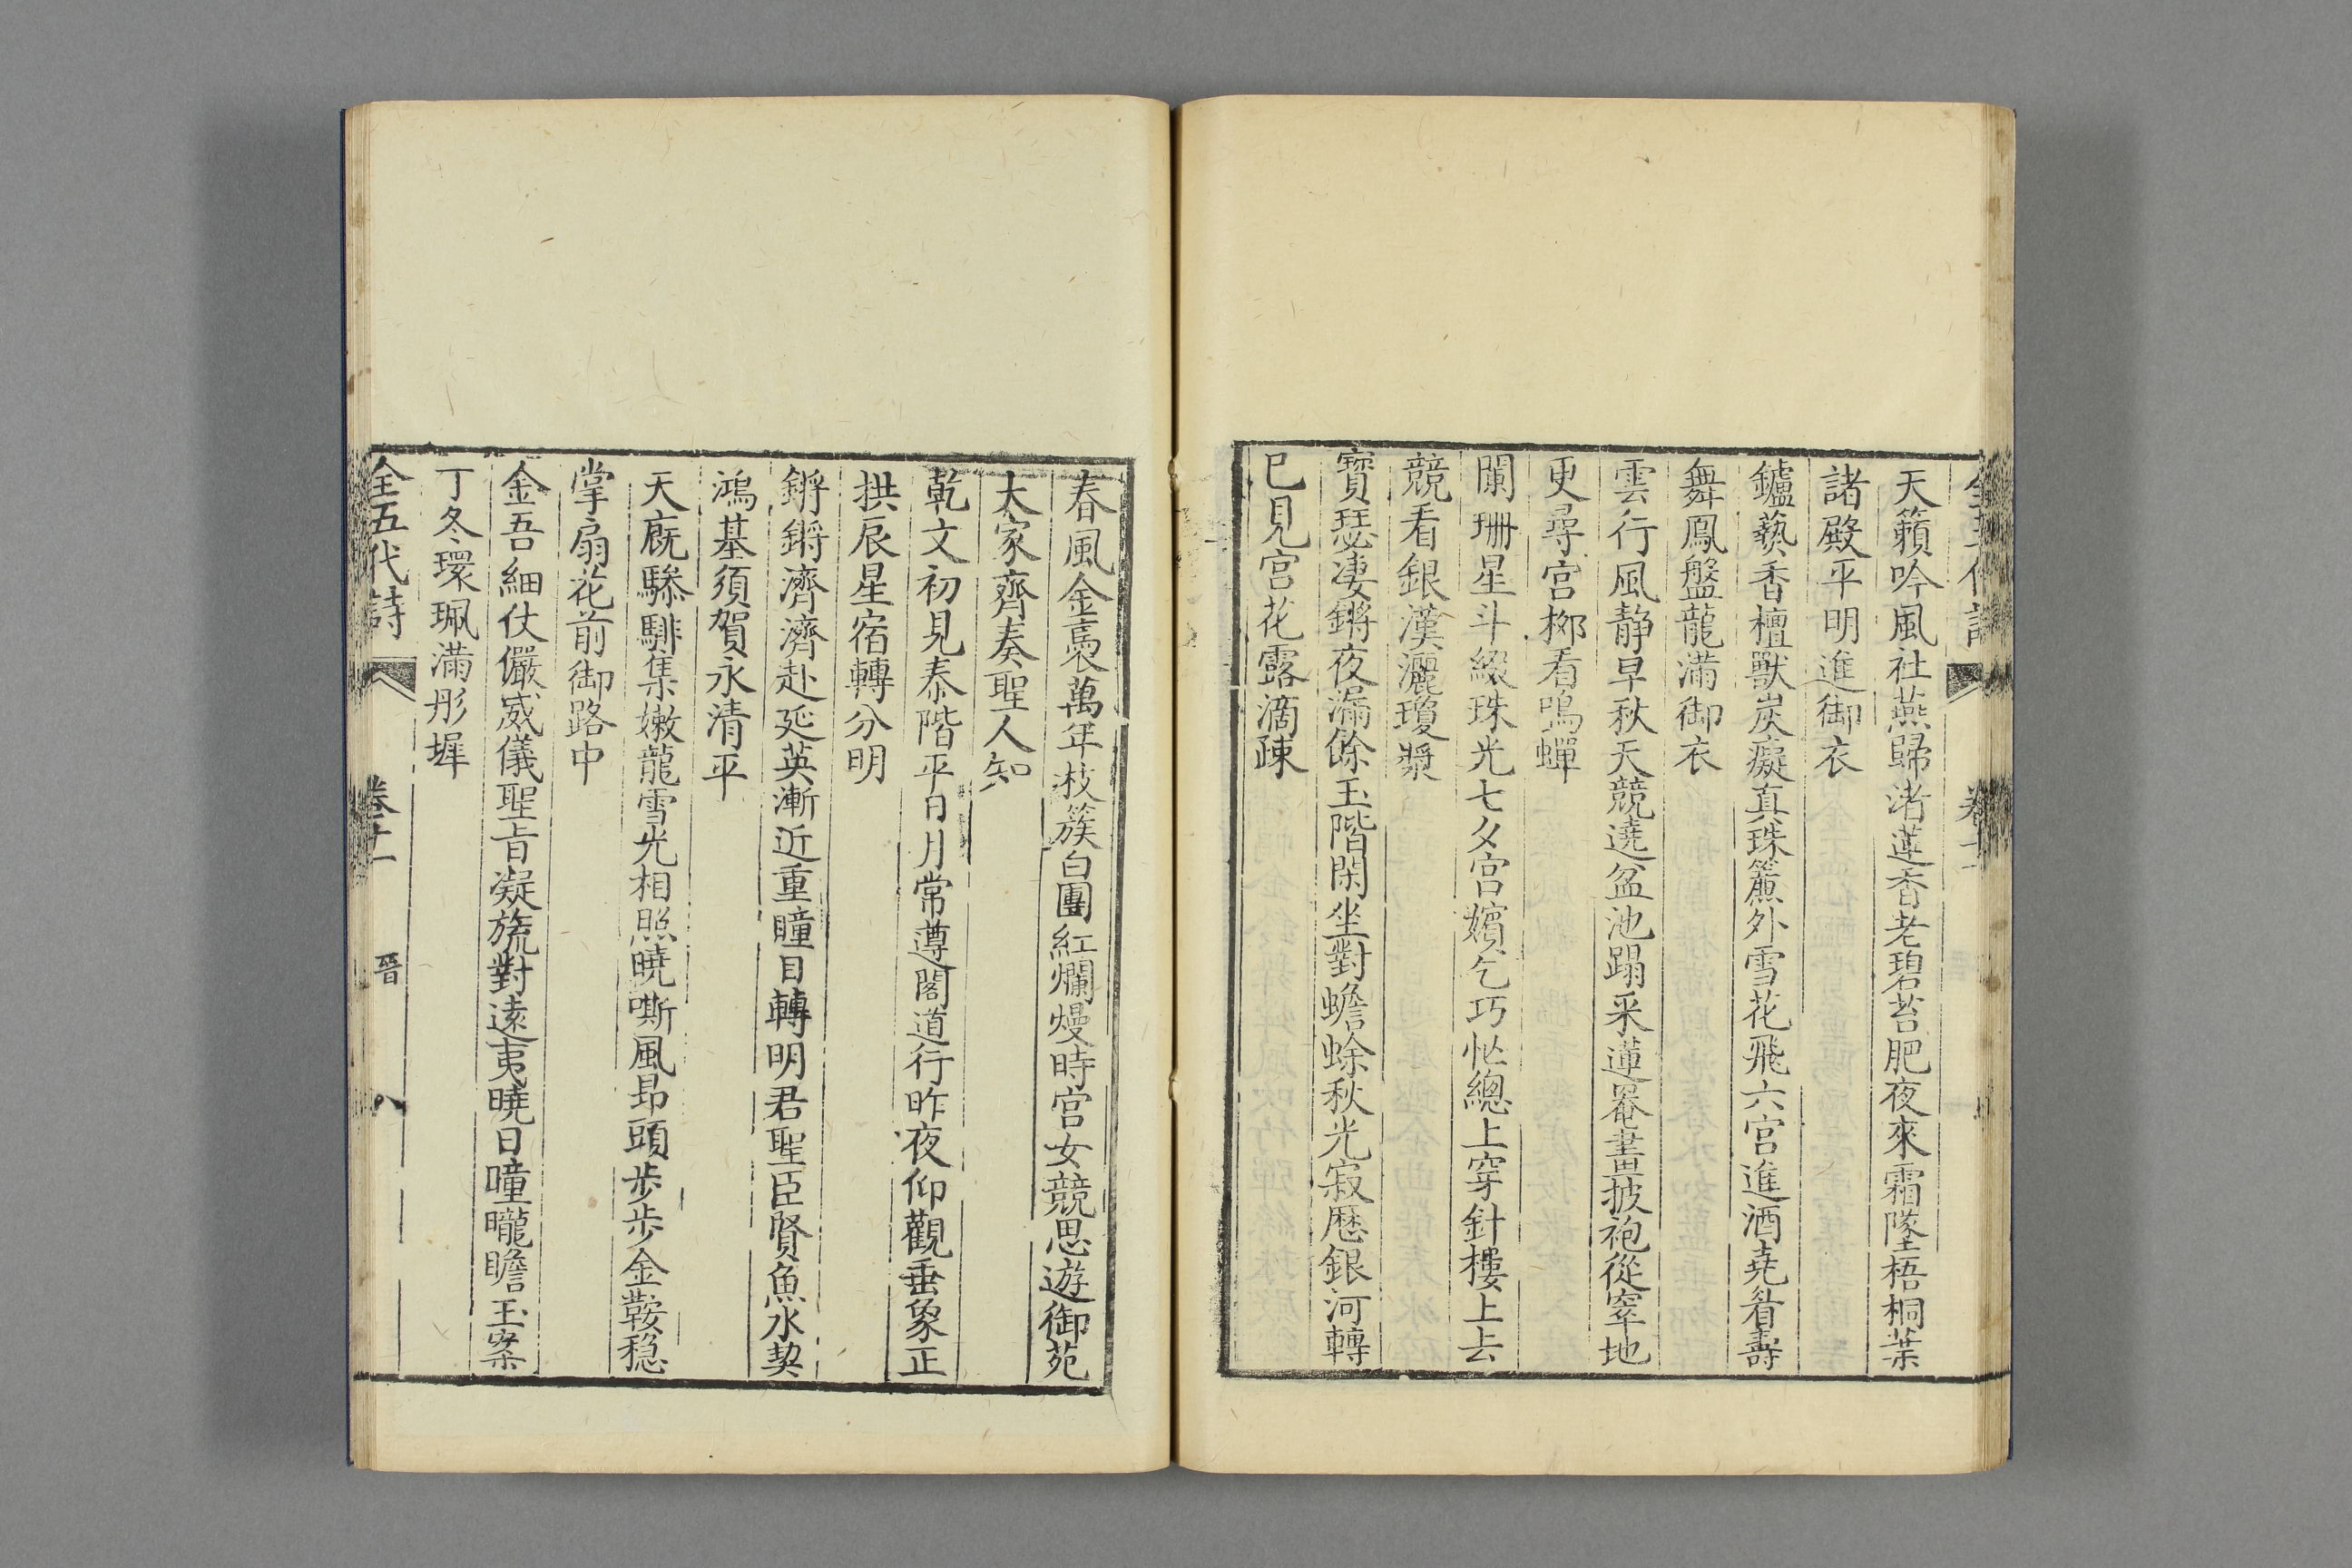 天籟吟風社燕歸渚蓮香老碧苔肥夜來霜墜梧桐葉
諸殿平明進御衣
鑪爇香檀獸炭癡真珠簾外雪花飛六宫進酒堯眉壽
舞鳳盤龍滿御衣
雲行風静早秋天競遶盆池蹋采蓮罨畫披袍從窣地
更尋宫柳看鳴蟬
闌珊星斗綴珠光七夕宫嬪乞巧忙總上穿針樓上去
競看銀漢灑瓊漿
寶瑟淒鏘夜漏餘玉階閑坐對蟾蜍秋光寂歷銀河轉
已見宫花露滴疎
春風金褭萬年枝簇白團紅爛熳時宫女競思遊御苑
大家齊奏聖人知
乾文初見泰階平日月常遵閣道行昨夜仰觀垂象正
拱辰星宿轉分明
鏘鏘濟濟赴延英漸近重瞳目轉明君聖臣賢魚水契
鴻基須賀永清平
天廐驂騑集嫩龍雪光相照曉嘶風昂頭步步金鞍穏
掌扇花前御路中
金吾細仗儼威儀聖旨凝旒對遠夷曉日曈曨瞻玉案
丁冬環珮滿彤墀
全五代詩 卷十一 晉 八